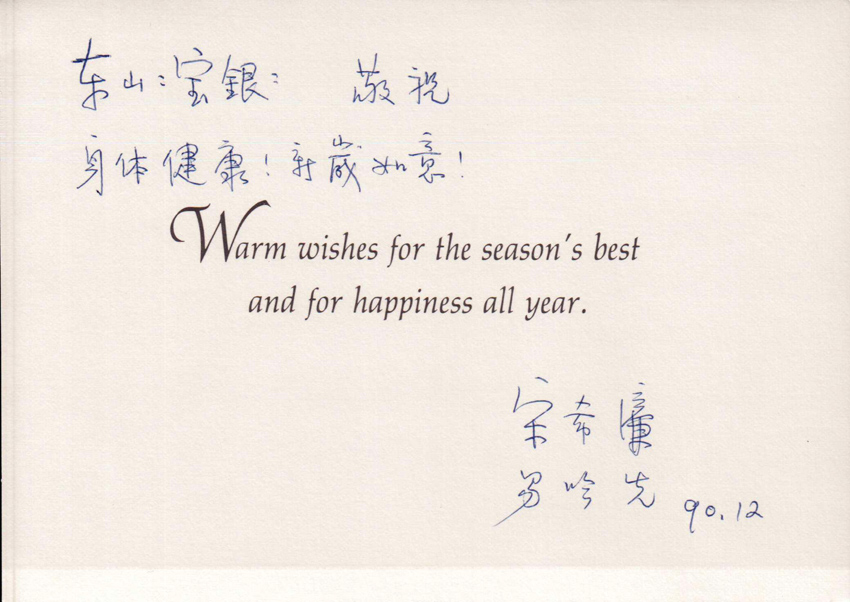 东山：宝銀： 敬祝
身体健康！新歲如意！
Warm wishes for the season's best
and for happiness all year.
宋希濂
易吟先
90.12